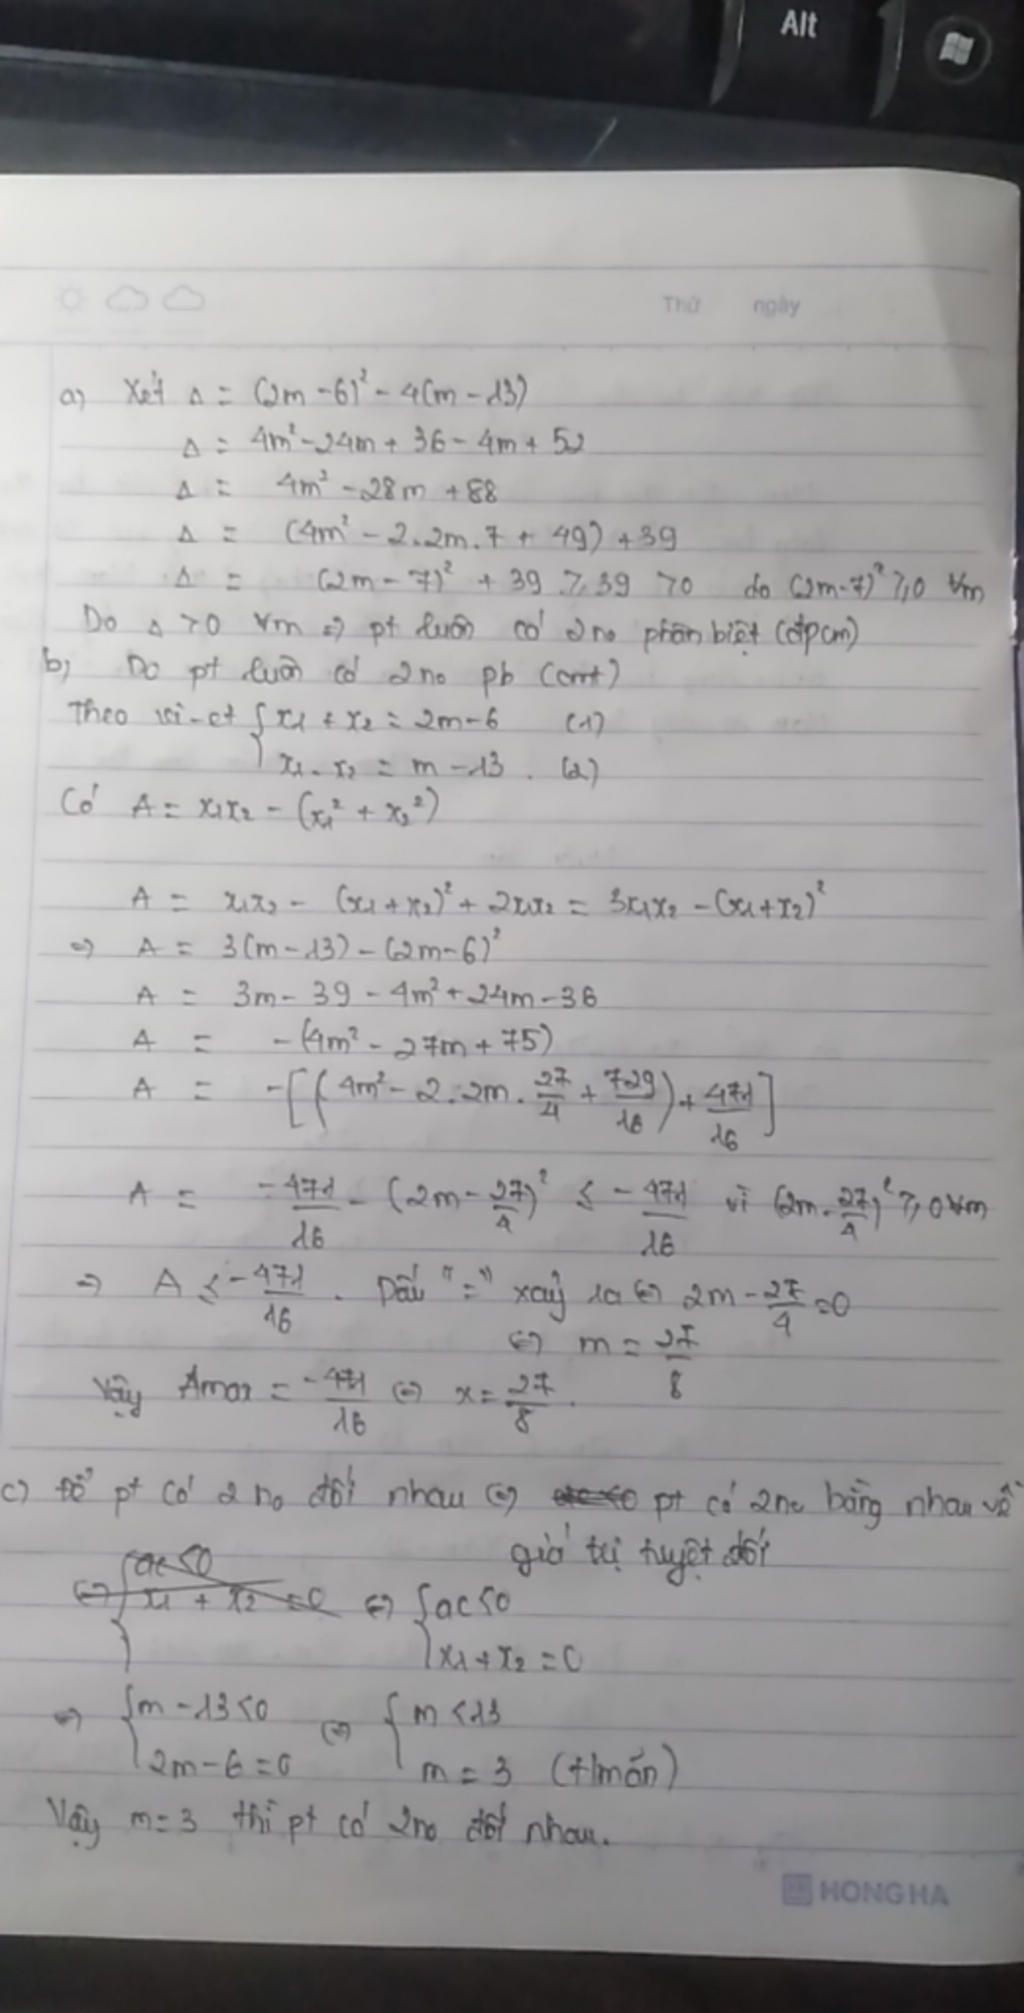 Alt
Thứ ngày
a) Xét Δ = (2m - 6)² - 4(m - 13)
Δ = 4m² - 24m + 36 - 4m + 52
Δ = 4m² - 28m + 88
Δ = (4m² - 2.2m.7 + 49) + 39
Δ = (2m - 7)² + 39 ≥ 39 > 0 do (2m-7)² ≥ 0 ∀m
Do Δ > 0 ∀m => pt luôn có 2 no phân biệt (đpcm)
b) Do pt luôn có 2 no pb (cmt)
Theo vi-et { x₁ + x₂ = 2m - 6 (1)
x₁.x₂ = m - 13. (2)
Có A = x₁x₂ - (x₁² + x₂²)
A = x₁x₂ - (x₁ + x₂)² + 2x₁x₂ = 3x₁x₂ - (x₁ + x₂)²
=> A = 3(m - 13) - (2m - 6)²
A = 3m - 39 - 4m² + 24m - 36
A = -(4m² - 27m + 75)
A = -[(4m² - 2.2m.27/4 + 729/16) + 471/16]
A = -471/16 - (2m - 27/4)² ≤ -471/16 vì (2m - 27/4)² ≥ 0 ∀m
=> A ≤ -471/16. Dấu "=" xảy ra <=> 2m - 27/4 = 0
<=> m = 27/8
Vậy Amax = -471/16 <=> x = 27/8.
c) Để pt có 2 no đối nhau <=> pt có 2no bằng nhau về
giá trị tuyệt đối
<=> { ac < 0
x₁ + x₂ = 0 <=> { ac < 0
x₁ + x₂ = 0
=> { m - 13 < 0 <=> { m < 13
2m - 6 = 0 m = 3 (t/mãn)
Vậy m = 3 thì pt có 2no đối nhau.
HONG HA